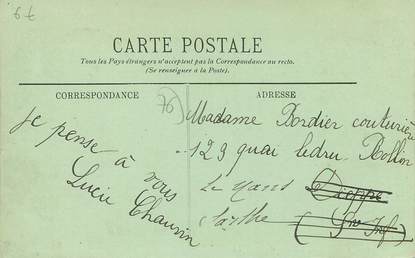 67
CARTE POSTALE
Tous les Pays étrangers n'acceptent pas la Correspondance au recto.
(Se renseigner à la Poste).
CORRESPONDANCE
Je pense
à vous
Lucie Chauvin
76
ADRESSE
Madame Bordier couturière
123 quai ledru-Rollin
Le Mans Dieppe
Sarthe (Sne Inf)